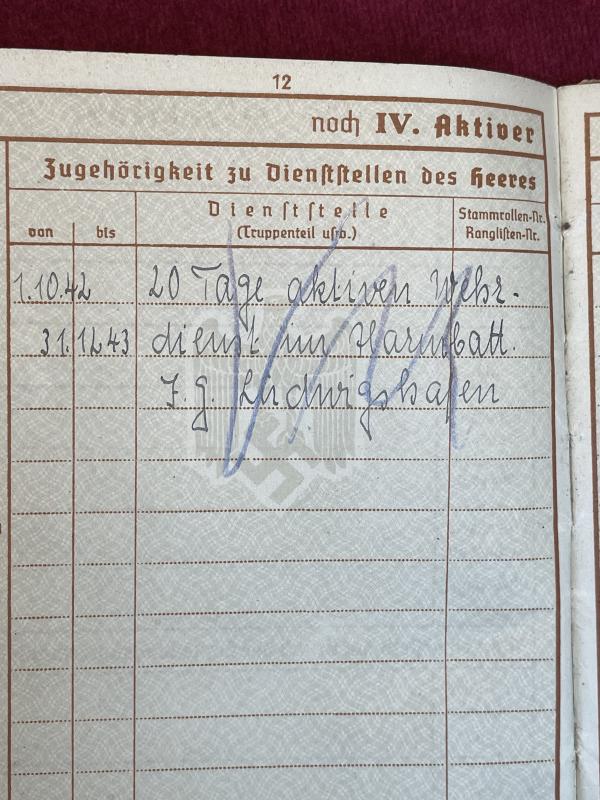 12
noch IV. Aktiver
Zugehörigkeit zu Dienststellen des Heeres
von bis Dienststelle (Truppenteil usw.) Stammrollen-Nr. Ranglisten-Nr.
1.10.42 20 Tage aktiven Wehr-
31.12.43 dienst im Harmbatt.
J. G. Ludwigshafen